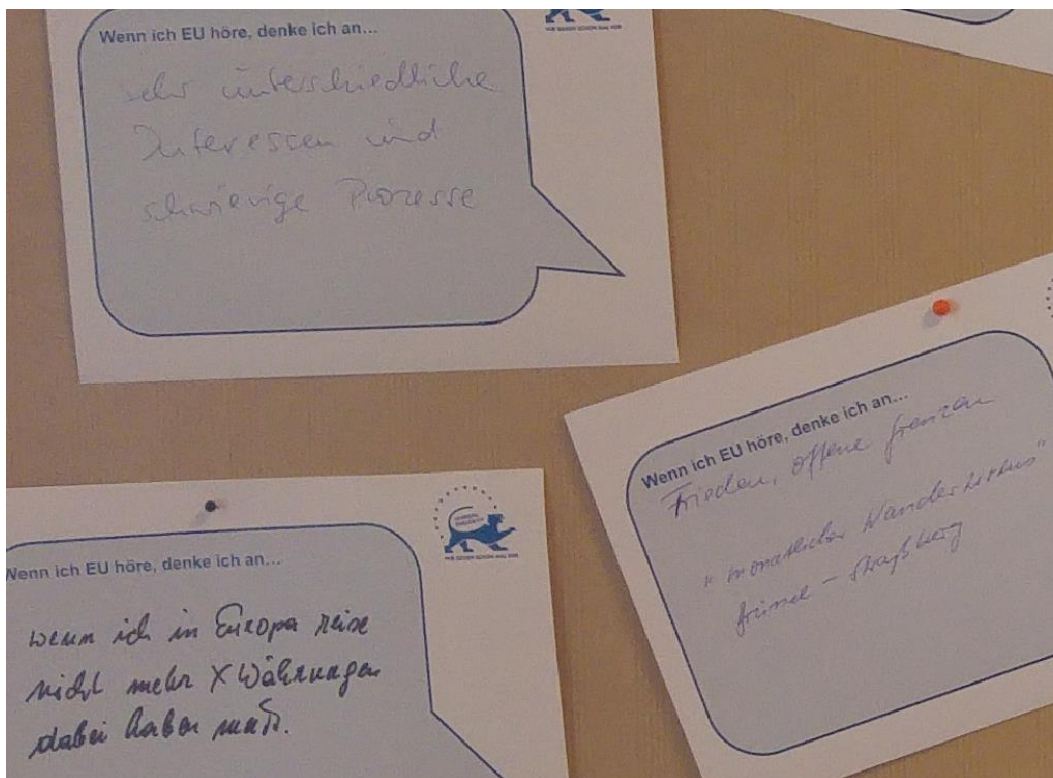 Wenn ich EU höre, denke ich an...
sehr unterschiedliche
Interessen und
schwierige Prozesse
Wenn ich EU höre, denke ich an...
Frieden, offene Grenzen
"monatlicher Wanderzirkus"
Brüssel – Straßburg
Wenn ich EU höre, denke ich an...
wenn ich in Europa reise
nicht mehr X Währungen
dabei haben muß.